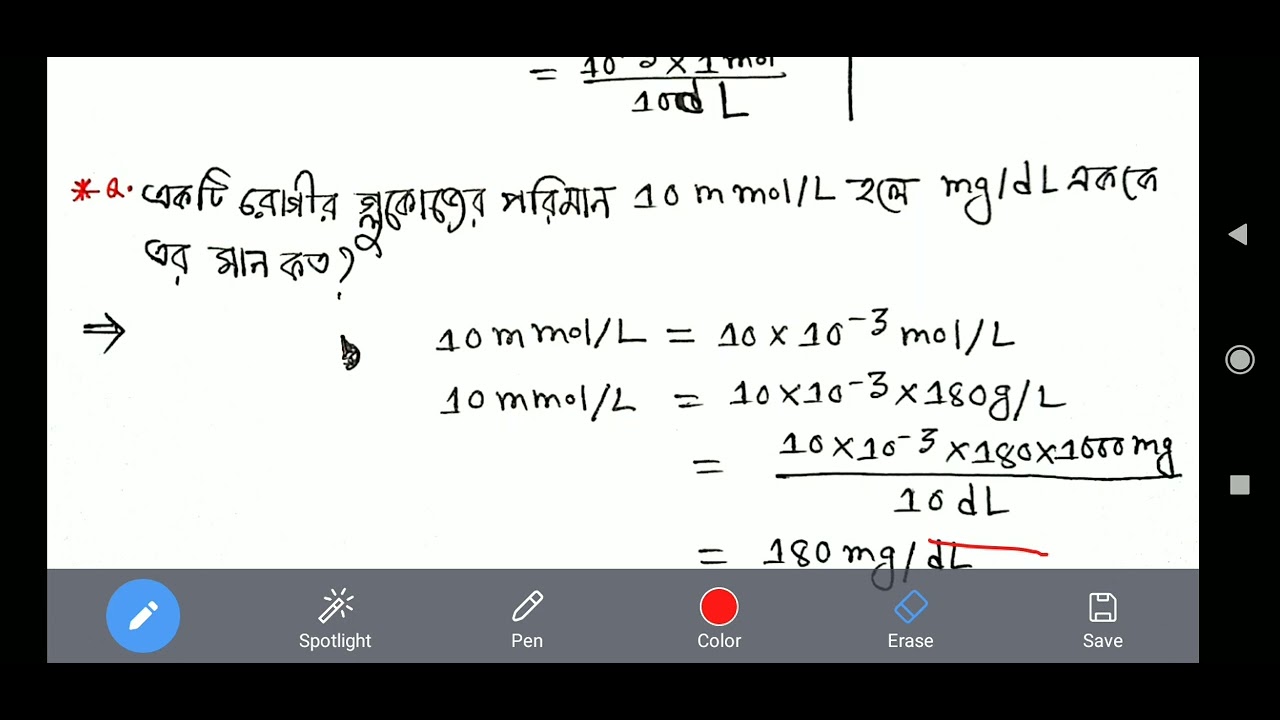 = 10⁻³ × 1 mol
10 dL
* ২. একটি রোগীর গ্লুকোজের পরিমান 10 mmol/L হলে mg/dL এককে
এর মান কত?
⇒ 10 mmol/L = 10 × 10⁻³ mol/L
10 mmol/L = 10×10⁻³×180g/L
= 10×10⁻³×180×1000 mg
10 dL
= 180 mg/dL
Spotlight Pen Color Erase Save